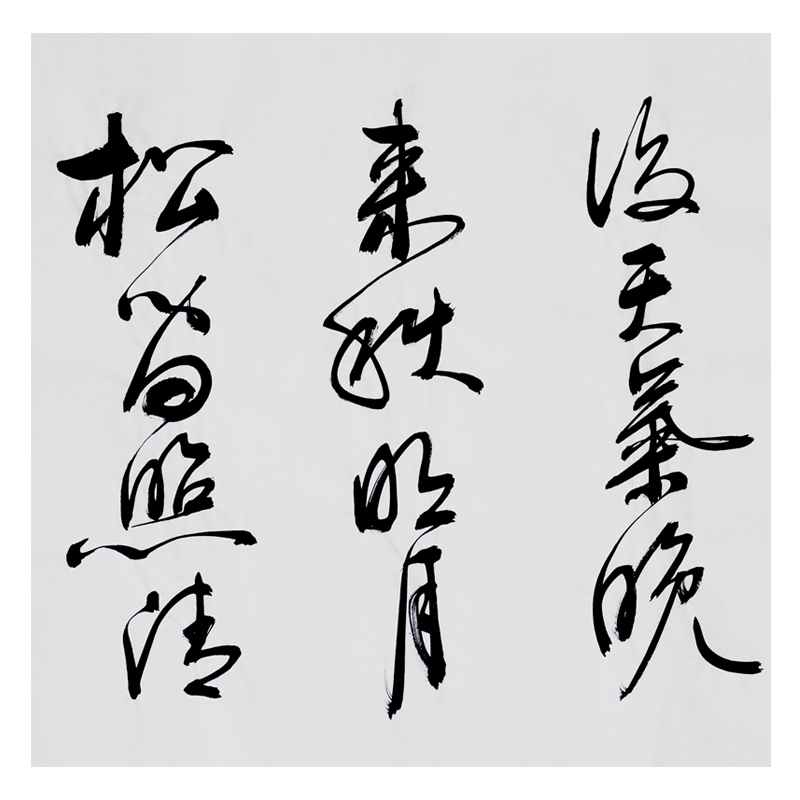 後天氣晚
來秋明月
松間照清